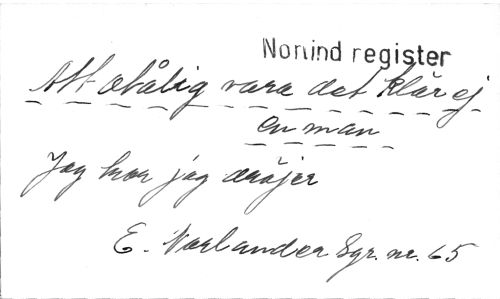 Norrind register
Att otålig vara det klär ej
en man
Jag tror jag dröjer
E. Norlander Sgr. nr. 65